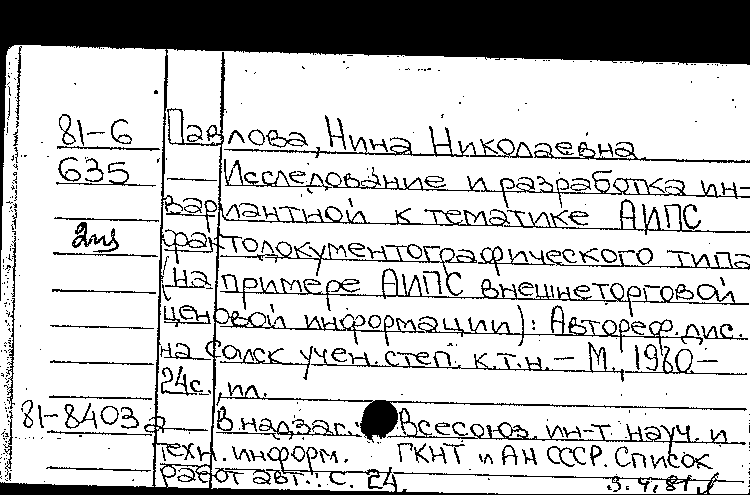 81-6 Павлова, Нина Николаевна
635 Исследование и разработка ин-
вариантной к тематике АИПС
2 фактодокументографического типа
(на примере АИПС внешнеторговой
ценовой информации): Автореф. дис.
на соиск учен. степ. к.т.н. – М., 1980 –
24с., ил.
81-8403а В надзаг.: Всесоюз. ин-т науч. и
техн. информ. ГКНТ и АН СССР. Список
работ авт.: с. 24.